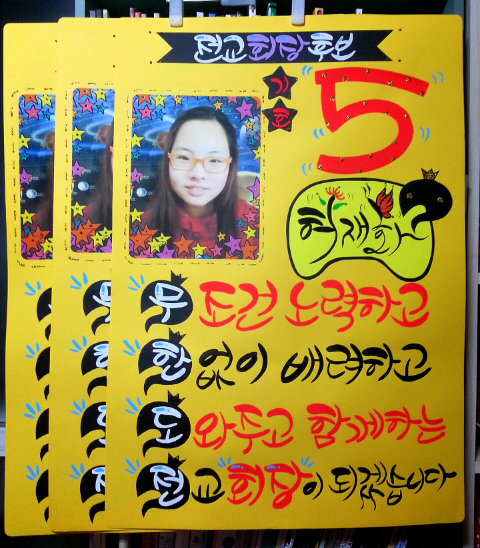 전교회장후보
기호 5
무조건 노력하고
한없이 배려하고
도와주고 함께하는
전교회장이 되겠습니다